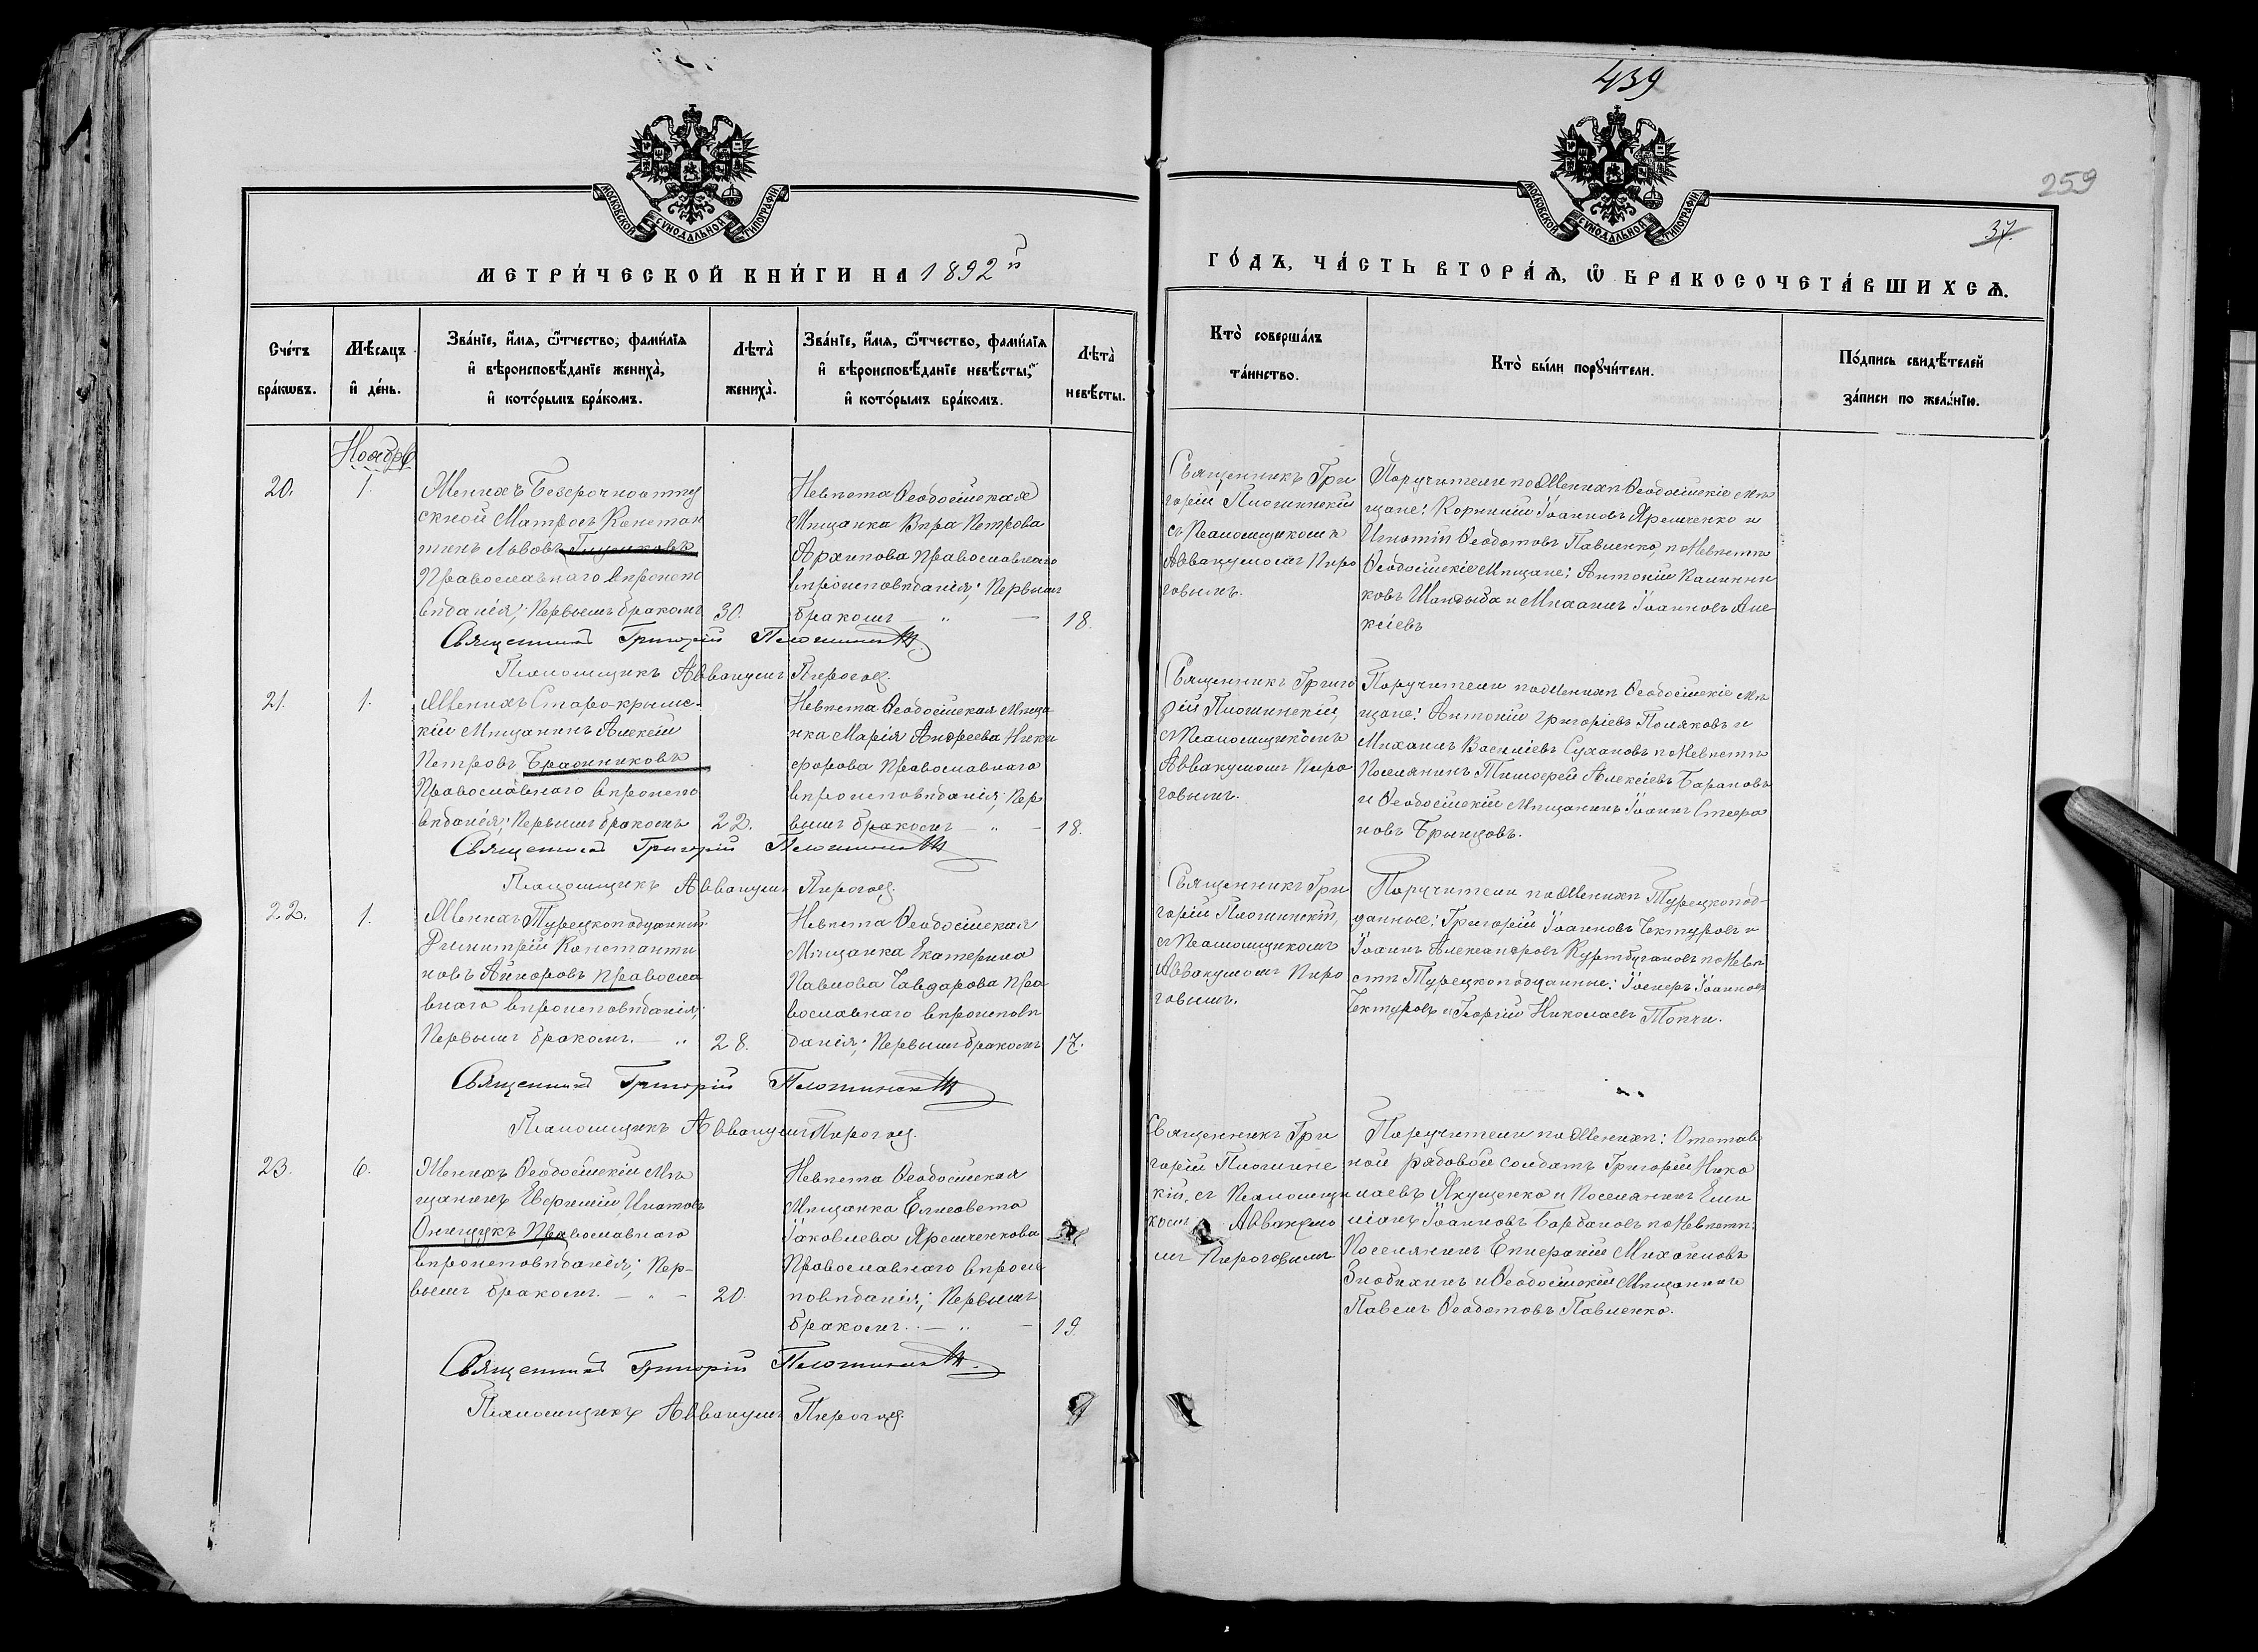 439
259
37.
МОСКОВСКОЙ СѴНОДАЛЬНОЙ ТИПОГРАФІИ
МОСКОВСКОЙ СѴНОДАЛЬНОЙ ТИПОГРАФІИ
МЕТРИ́ЧЕСКОЙ КНИ́ГИ НА 1892й
ГО́ДЪ, ЧА́СТЬ ВТОРА́Ѧ, Ѽ БРАКОСОЧЕТА́ВШИХСѦ.
Сче́тъ
бра́кωвъ.
Мѣ́сяцъ
и҆ де́нь.
Зва́нїе, и҆́мя, ѻ҆́тчество, фами́лїя
и҆ вѣроисповѣ́данїе жениха̀,
и҆ кото́рымъ бра́комъ.
Лѣта̀
жениха̀.
Зва́нїе, и҆́мя, ѻ҆́тчество, фами́лїя
и҆ вѣроисповѣ́данїе невѣ́сты,
и҆ кото́рымъ бра́комъ.
Лѣта̀
невѣ́сты.
Кто̀ соверша́лъ
та́инство.
Кто̀ бы́ли порꙋчи́тели.
По́дпись свидѣ́телей
за́писи по жела́нїю.
Ноябрь
20.
1.
Женихъ Безсрочноотпу
скной Матросъ Констан
тинъ Львовъ
Православнаго вѣроиспо
вѣданія; Первымъ бракомъ
30.
Невѣста Ѳеодосійская
Мѣщанка Вѣра Петрова
Архипова Православнаго
вѣроисповѣданія; Первымъ
бракомъ — " —
18.
Священникъ Гри
горій Плошинскій
съ Псаломщикомъ
Аввакумомъ Пиро
говымъ.
Поручители по Женихѣ Ѳеодосійскіе Мѣ
щане: Корнилій Іоанновъ Яремченко и
Игнатій Ѳеодотовъ Павленко, по Невѣстѣ
Ѳеодосійскіе Мѣщане: Антоній Калинни
ковъ и Михаилъ Іоанновъ Але
ксіевъ
Священникъ Григорій Плошинскій.
Псаломщикъ Аввакумъ Пироговъ.
21.
1.
Женихъ Старо-крымс-
кій Мѣщанинъ Алексій
Петровъ Бражниковъ
Православнаго вѣроиспо
вѣданія; Первымъ бракомъ
22.
Невѣста Ѳеодосійская Мѣща
нка Марія Андреева Ники
форова Православнаго
вѣроисповѣданія; Пер
вымъ бракомъ — " —
18.
Священникъ Григо
рій Плошинскій,
съ Псаломщикомъ
Аввакумомъ Пиро
говымъ.
Поручители по Женихѣ Ѳеодосійскіе Мѣ
щане: Антоній Григоріевъ Поляковъ и
Михаилъ Василіевъ Сухановъ по Невѣстѣ
Поселянинъ Тимоѳей Алексіевъ Барановъ
и Ѳеодосійскій Мѣщанинъ Іоаннъ Стефа
новъ Брынцовъ.
Священникъ Григорій Плошинскій
Псаломщикъ Аввакумъ Пироговъ.
22.
1.
Женихъ Турецкоподданный
Димитрій Константи
новъ Айноровъ Правосла
внаго вѣроисповѣданія;
Первымъ бракомъ. — "
28.
Невѣста Ѳеодосійская
Мѣщанка Екатерина
Павлова Чавдарова Пра
вославнаго вѣроисповѣ
данія; Первымъ бракомъ
17.
Священникъ Гри
горій Плошинскій,
съ Псаломщикомъ
Аввакумомъ Пиро
говымъ.
Поручители по Женихѣ Турецкопод-
данные: Григорій Іоанновъ Чектуровъ и
Іоаннъ Александровъ Куртбугановъ по Невѣ
стѣ Турецкоподданные: Іосифъ Іоанновъ
Чектуровъ и Георгій Николаевъ Топчи.
Священникъ Григорій Плошинскій
Псаломщикъ Аввакумъ Пироговъ.
23.
6.
Женихъ Ѳеодосійскій Мѣ
щанинъ Евфимій Игнатовъ
Онищукъ Православнаго
вѣроисповѣданія; Пер-
вымъ бракомъ. — " —
20.
Невѣста Ѳеодосійская
Мѣщанка Елисавета
Іаковлева Яремченкова
Православнаго вѣроис
повѣданія; Первымъ
бракомъ. — " —
19.
Священникъ Гри
горій Плошинс
кій, съ Псаломщи
комъ Аввакумо
мъ Пироговымъ
Поручители по Женихѣ: Отстав
ной рядовой солдатъ Григорій Нико
лаевъ Якущенко и Поселянинъ Еми
ліанъ Іоанновъ Бардановъ по Невѣстѣ:
Поселянинъ Епифаній Михаиловъ
Злобихинъ и Ѳеодосійскій Мѣщанинъ
Павелъ Ѳеодотовъ Павленко.
Священникъ Григорій Плошинскій.
Псаломщикъ Аввакумъ Пироговъ.